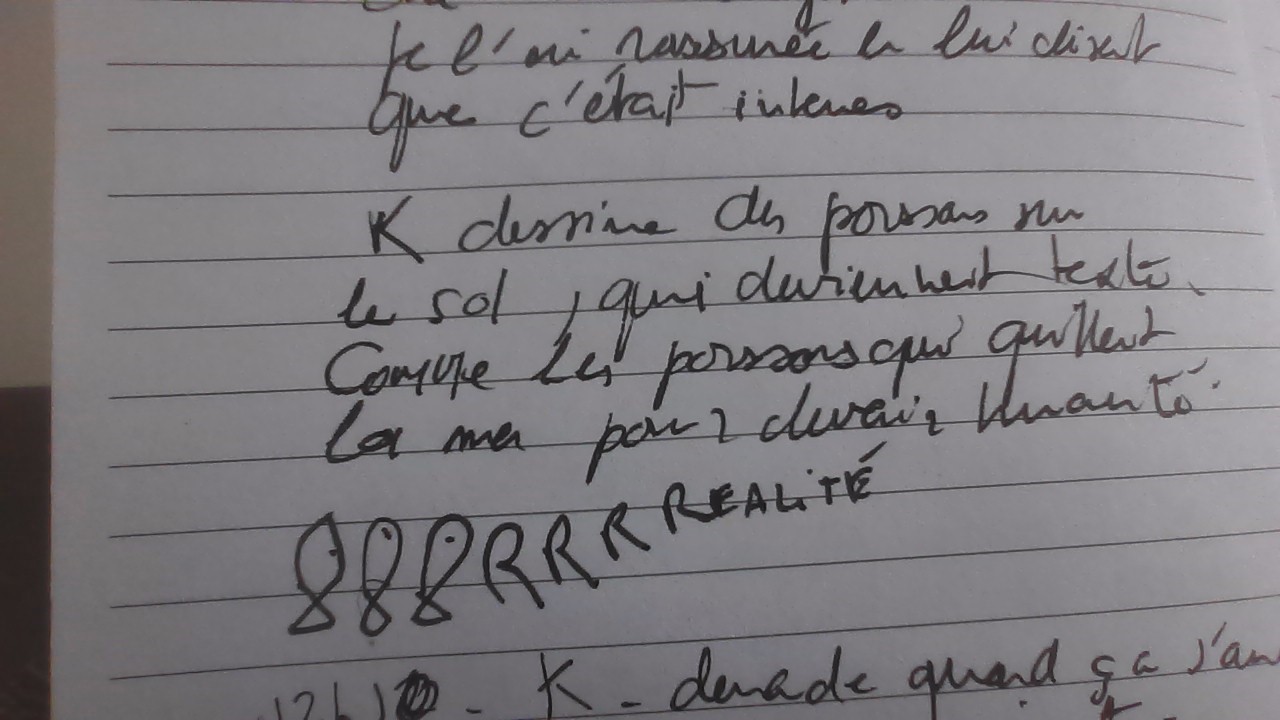 je l'ai rassurée en lui disant
que c'était intense
K dessine des poissons sur
le sol, qui deviennent texte.
Comme les poissons qui quittent
la mer pour devenir humanité.
RRR REALITÉ
K - demande quand ça s'arr